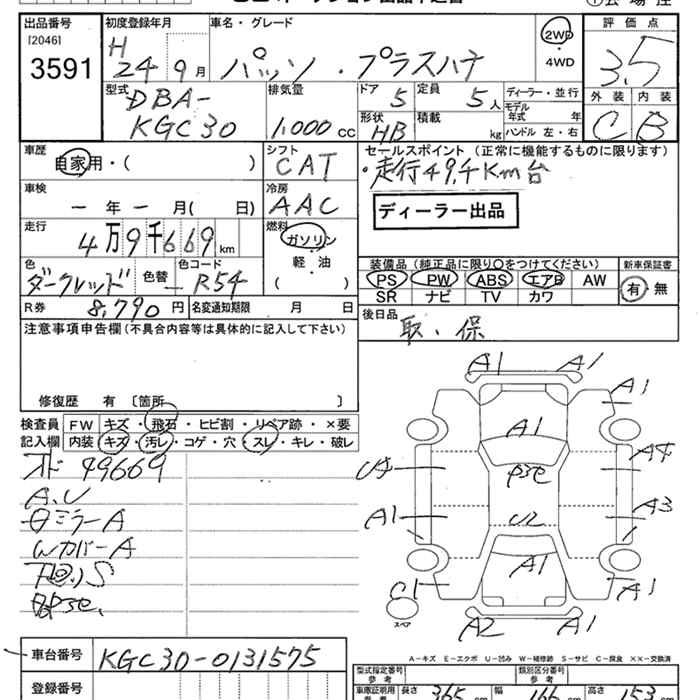 出品番号
[2046]
3591
初度登録年月
H
24 9月
車名・グレード
パッソ ・ プラスハナ
2WD
・
4WD
評価点
3.5
外装 内装
C B
型式
DBA-
KGC30
排気量
1,000 CC
ドア 5
定員 5人
ディーラー・並行
形状 HB
積載 kg
モデル年式 年
ハンドル 左・右
車歴
自家用・( )
シフト
CAT
セールスポイント (正常に機能するものに限ります)
・走行49千Km台
車検
ー年ー月( 日)
冷房
AAC
ディーラー出品
走行
4万9千669km
燃料
ガソリン
・
軽・油
( )
色
ダークレッド
色替 ー
色コード
R54
装備品(純正品に限り○をつけてください)
新車保証書
PS PW ABS エアB AW
SR ナビ TV カワ
有・無
R券 8,790円
名変通知期限 月 日
後日品
取・保
注意事項申告欄(不具合内容等は具体的に記入して下さい)
修復歴 有 〔箇所 〕
検査員
記入欄
FW キズ・飛石・ヒビ割・リペア跡・×要
内装 キズ・汚レ・コゲ・穴・スレ・キレ・破レ
49669
A.U
ミラーA
WカバーA
A1 A1
A1
A1
U4
P3e
A4
A1
U2
A3
C1
A1
A1
スペア
A2 A1
A-キズ E-エクボ U-凹ミ W-補修跡 S-サビ C-腐食 ××-交換済
車台番号 KGC30-0131575
登録番号
型式指定番号
参考
類別区分番号
参考
車庫証明用
参考
長さ 365 cm
幅 166 cm
高さ 153 cm